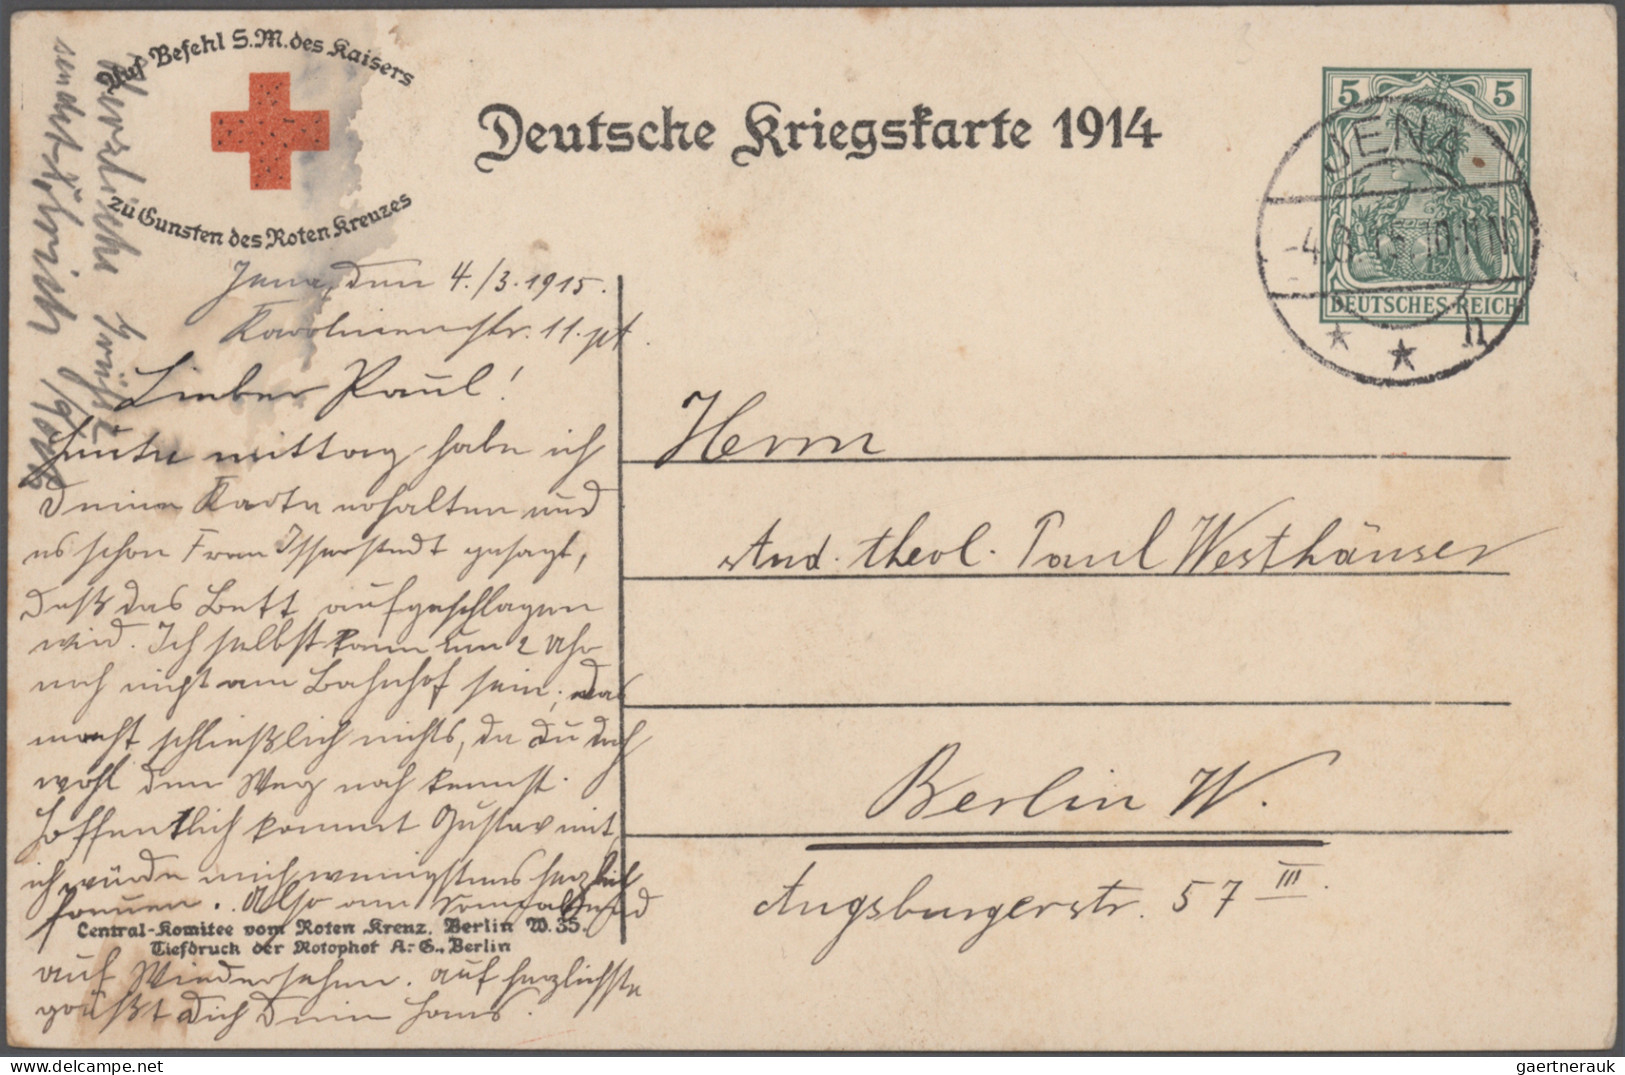 Auf Befehl S.M. des Kaisers
zu Gunsten des Roten Kreuzes
Deutsche Kriegskarte 1914
5 5
DEUTSCHES REICH
JENA
-4.3.15 10-11 V
* * h
Herzliche Grüße
sendet
Jena, den 4./3. 1915.
Karolinenstr. 11. pt.
Lieber Paul!
Heute mittag habe ich
Deine Karte erhalten und
es schon Frau Isserstedt gesagt,
daß das Bett aufgeschlagen
wird. Ich selbst kann um 2 Uhr
noch nicht am Bahnhof sein; das
macht schließlich nichts, da Du doch
wohl den Weg noch kennst.
Hoffentlich kommt Gustav mit,
ich würde mich wenigstens herzlich
freuen. Also am Sonnabend
Central-Komitee vom Roten Kreuz, Berlin W. 35.
Tiefdruck der Rotophot A.-G., Berlin
auf Wiedersehen. Auf herzlichste
grüßt Dich Dein Hans.
Herrn
stud. theol. Paul Westhäuser
Berlin W.
Augsburgerstr. 57 III.
gaertnerauk